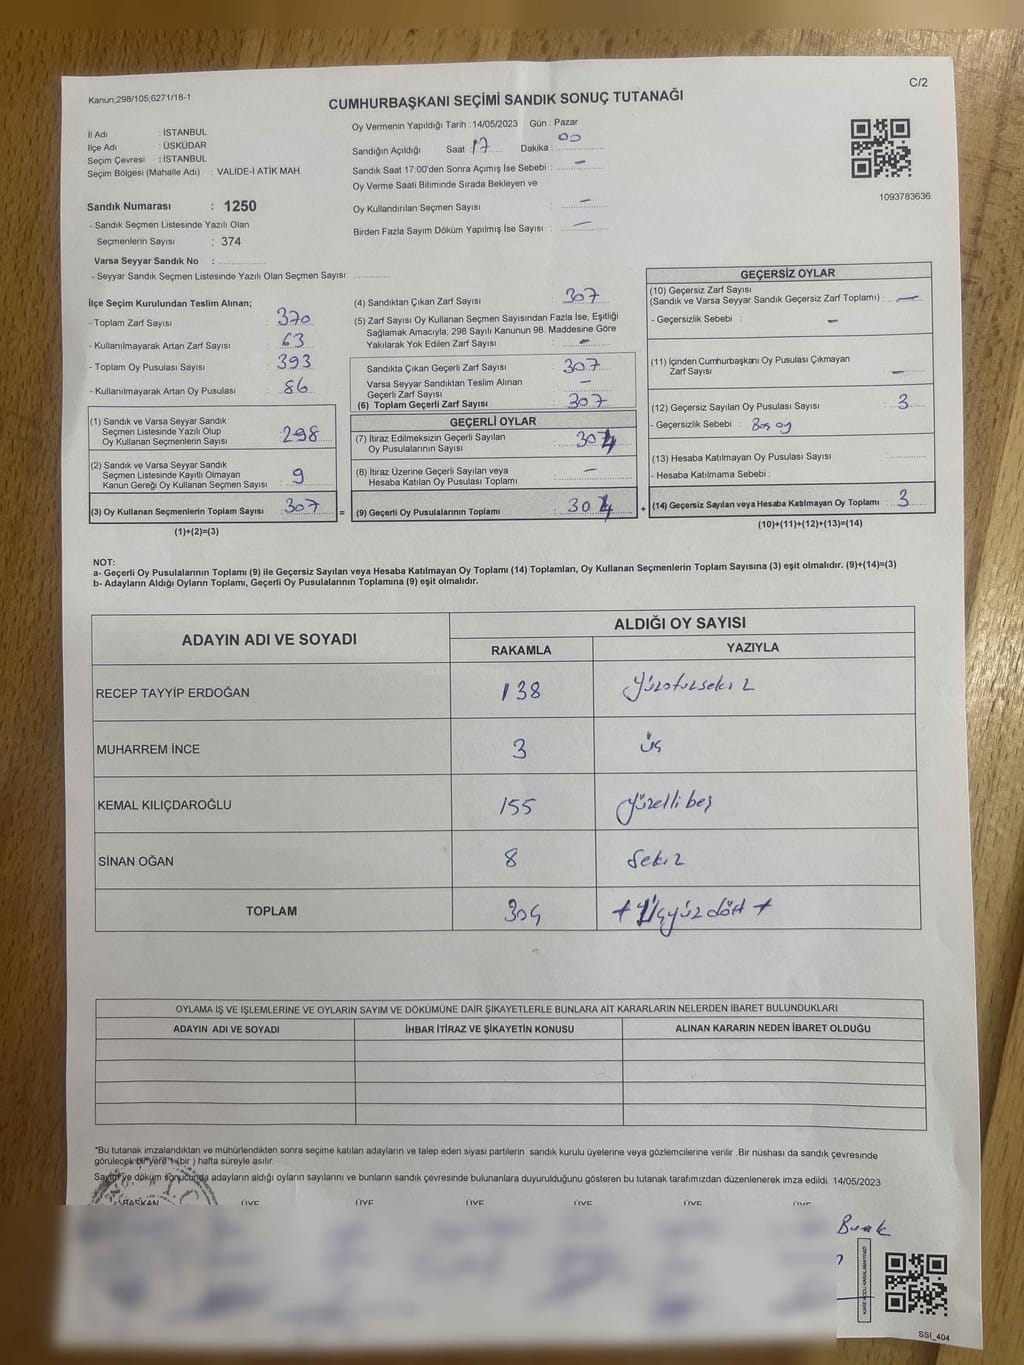 C/2
Kanun;298/105;6271/18-1
CUMHURBAŞKANI SEÇİMİ SANDIK SONUÇ TUTANAĞI
İl Adı : İSTANBUL
İlçe Adı : ÜSKÜDAR
Seçim Çevresi : İSTANBUL
Seçim Bölgesi (Mahalle Adı) : VALİDE-İ ATİK MAH.
Sandık Numarası : 1250
- Sandık Seçmen Listesinde Yazılı Olan
Seçmenlerin Sayısı : 374
Varsa Seyyar Sandık No : ..............
- Seyyar Sandık Seçmen Listesinde Yazılı Olan Seçmen Sayısı: ............
Oy Vermenin Yapıldığı Tarih : 14/05/2023 Gün : Pazar
Sandığın Açıldığı Saat 17 Dakika : 00
Sandık Saat 17:00'den Sonra Açımış İse Sebebi : -
Oy Verme Saati Bitiminde Sırada Bekleyen ve
Oy Kullandırılan Seçmen Sayısı : -
Birden Fazla Sayım Döküm Yapılmış İse Sayısı : -
1093783636
İlçe Seçim Kurulundan Teslim Alınan;
- Toplam Zarf Sayısı : 370
- Kullanılmayarak Artan Zarf Sayısı : 63
- Toplam Oy Pusulası Sayısı : 393
- Kullanılmayarak Artan Oy Pusulası : 86
(1) Sandık ve Varsa Seyyar Sandık
Seçmen Listesinde Yazılı Olup
Oy Kullanan Seçmenlerin Sayısı : 298
(2) Sandık ve Varsa Seyyar Sandık
Seçmen Listesinde Kayıtlı Olmayan
Kanun Gereği Oy Kullanan Seçmen Sayısı : 9
(3) Oy Kullanan Seçmenlerin Toplam Sayısı : 307
(1)+(2)=(3)
(4) Sandıktan Çıkan Zarf Sayısı : 307
(5) Zarf Sayısı Oy Kullanan Seçmen Sayısından Fazla İse, Eşitliği
Sağlamak Amacıyla; 298 Sayılı Kanunun 98. Maddesine Göre
Yakılarak Yok Edilen Zarf Sayısı : -
Sandıkta Çıkan Geçerli Zarf Sayısı : 307
Varsa Seyyar Sandıktan Teslim Alınan
Geçerli Zarf Sayısı : -
(6) Toplam Geçerli Zarf Sayısı : 307
GEÇERLİ OYLAR
(7) İtiraz Edilmeksizin Geçerli Sayılan
Oy Pusulalarının Sayısı : 304
(8) İtiraz Üzerine Geçerli Sayılan veya
Hesaba Katılan Oy Pusulası Toplamı : -
= (9) Geçerli Oy Pusulalarının Toplamı : 304 +
GEÇERSİZ OYLAR
(10) Geçersiz Zarf Sayısı
(Sandık ve Varsa Seyyar Sandık Geçersiz Zarf Toplamı) : -
- Geçersizlik Sebebi : -
(11) İçinden Cumhurbaşkanı Oy Pusulası Çıkmayan
Zarf Sayısı : -
(12) Geçersiz Sayılan Oy Pusulası Sayısı : 3
- Geçersizlik Sebebi : Boş oy
(13) Hesaba Katılmayan Oy Pusulası Sayısı : ............
- Hesaba Katılmama Sebebi :
(14) Geçersiz Sayılan veya Hesaba Katılmayan Oy Toplamı : 3
(10)+(11)+(12)+(13)=(14)
NOT:
a- Geçerli Oy Pusulalarının Toplamı (9) ile Geçersiz Sayılan veya Hesaba Katılmayan Oy Toplamı (14) Toplamları, Oy Kullanan Seçmenlerin Toplam Sayısına (3) eşit olmalıdır. (9)+(14)=(3)
b- Adayların Aldığı Oyların Toplamı, Geçerli Oy Pusulalarının Toplamına (9) eşit olmalıdır.
ADAYIN ADI VE SOYADI ALDIĞI OY SAYISI
RAKAMLA YAZIYLA
RECEP TAYYİP ERDOĞAN 138 yüzotuzsekiz
MUHARREM İNCE 3 üç
KEMAL KILIÇDAROĞLU 155 yüzelli beş
SİNAN OĞAN 8 sekiz
TOPLAM 304 + Üçyüz dört +
OYLAMA İŞ VE İŞLEMLERİNE VE OYLARIN SAYIM VE DÖKÜMÜNE DAİR ŞİKAYETLERLE BUNLARA AİT KARARLARIN NELERDEN İBARET BULUNDUKLARI
ADAYIN ADI VE SOYADI İHBAR İTİRAZ VE ŞİKAYETİN KONUSU ALINAN KARARIN NEDEN İBARET OLDUĞU
*Bu tutanak imzalandıktan ve mühürlendikten sonra seçime katılan adayların ve talep eden siyasi partilerin sandık kurulu üyelerine veya gözlemcilerine verilir .Bir nüshası da sandık çevresinde
görülecek bir yere 1 (bir ) hafta süreyle asılır.
Sayım ve döküm sonucunda adayların aldığı oyların sayılarını ve bunların sandık çevresinde bulunanlara duyurulduğunu gösteren bu tutanak tarafımızdan düzenlenerek imza edildi. 14/05/2023
BAŞKAN ÜYE ÜYE ÜYE ÜYE ÜYE ÜYE
Burak
SSI_404